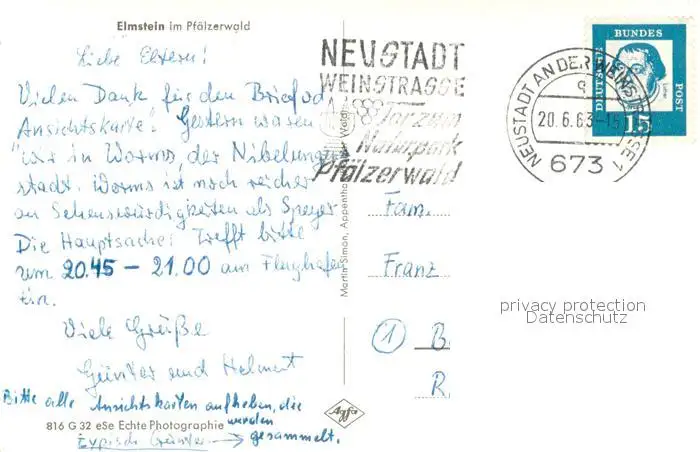 Elmstein im Pfälzerwald
Liebe Eltern!
Vielen Dank für den Brief u d
Ansichtskarte! Gestern waren
wir in Worms, der Nibelungen
stadt. Worms ist noch reicher
an Sehenswürdigkeiten als Speyer
Die Hauptsache: Trefft bitte
um 20.45 – 21.00 am Flughafen
ein.
Viele Grüße
Günter und Helmut
Bitte alle Ansichtskarten aufheben, die
werden
Typisch Günter → gesammelt.
816 G 32 eSe Echte Photographie
Agfa
Martin Simon, Appenthal
NEUSTADT
WEINSTRASSE
Tor zum
Naturpark
Pfälzerwald
NEUSTADT AN DER WEINSTRASSE 1
20.6.63-15
673
DEUTSCHE BUNDES POST
15
Fam.
Franz
(1) B
R
privacy protection
Datenschutz